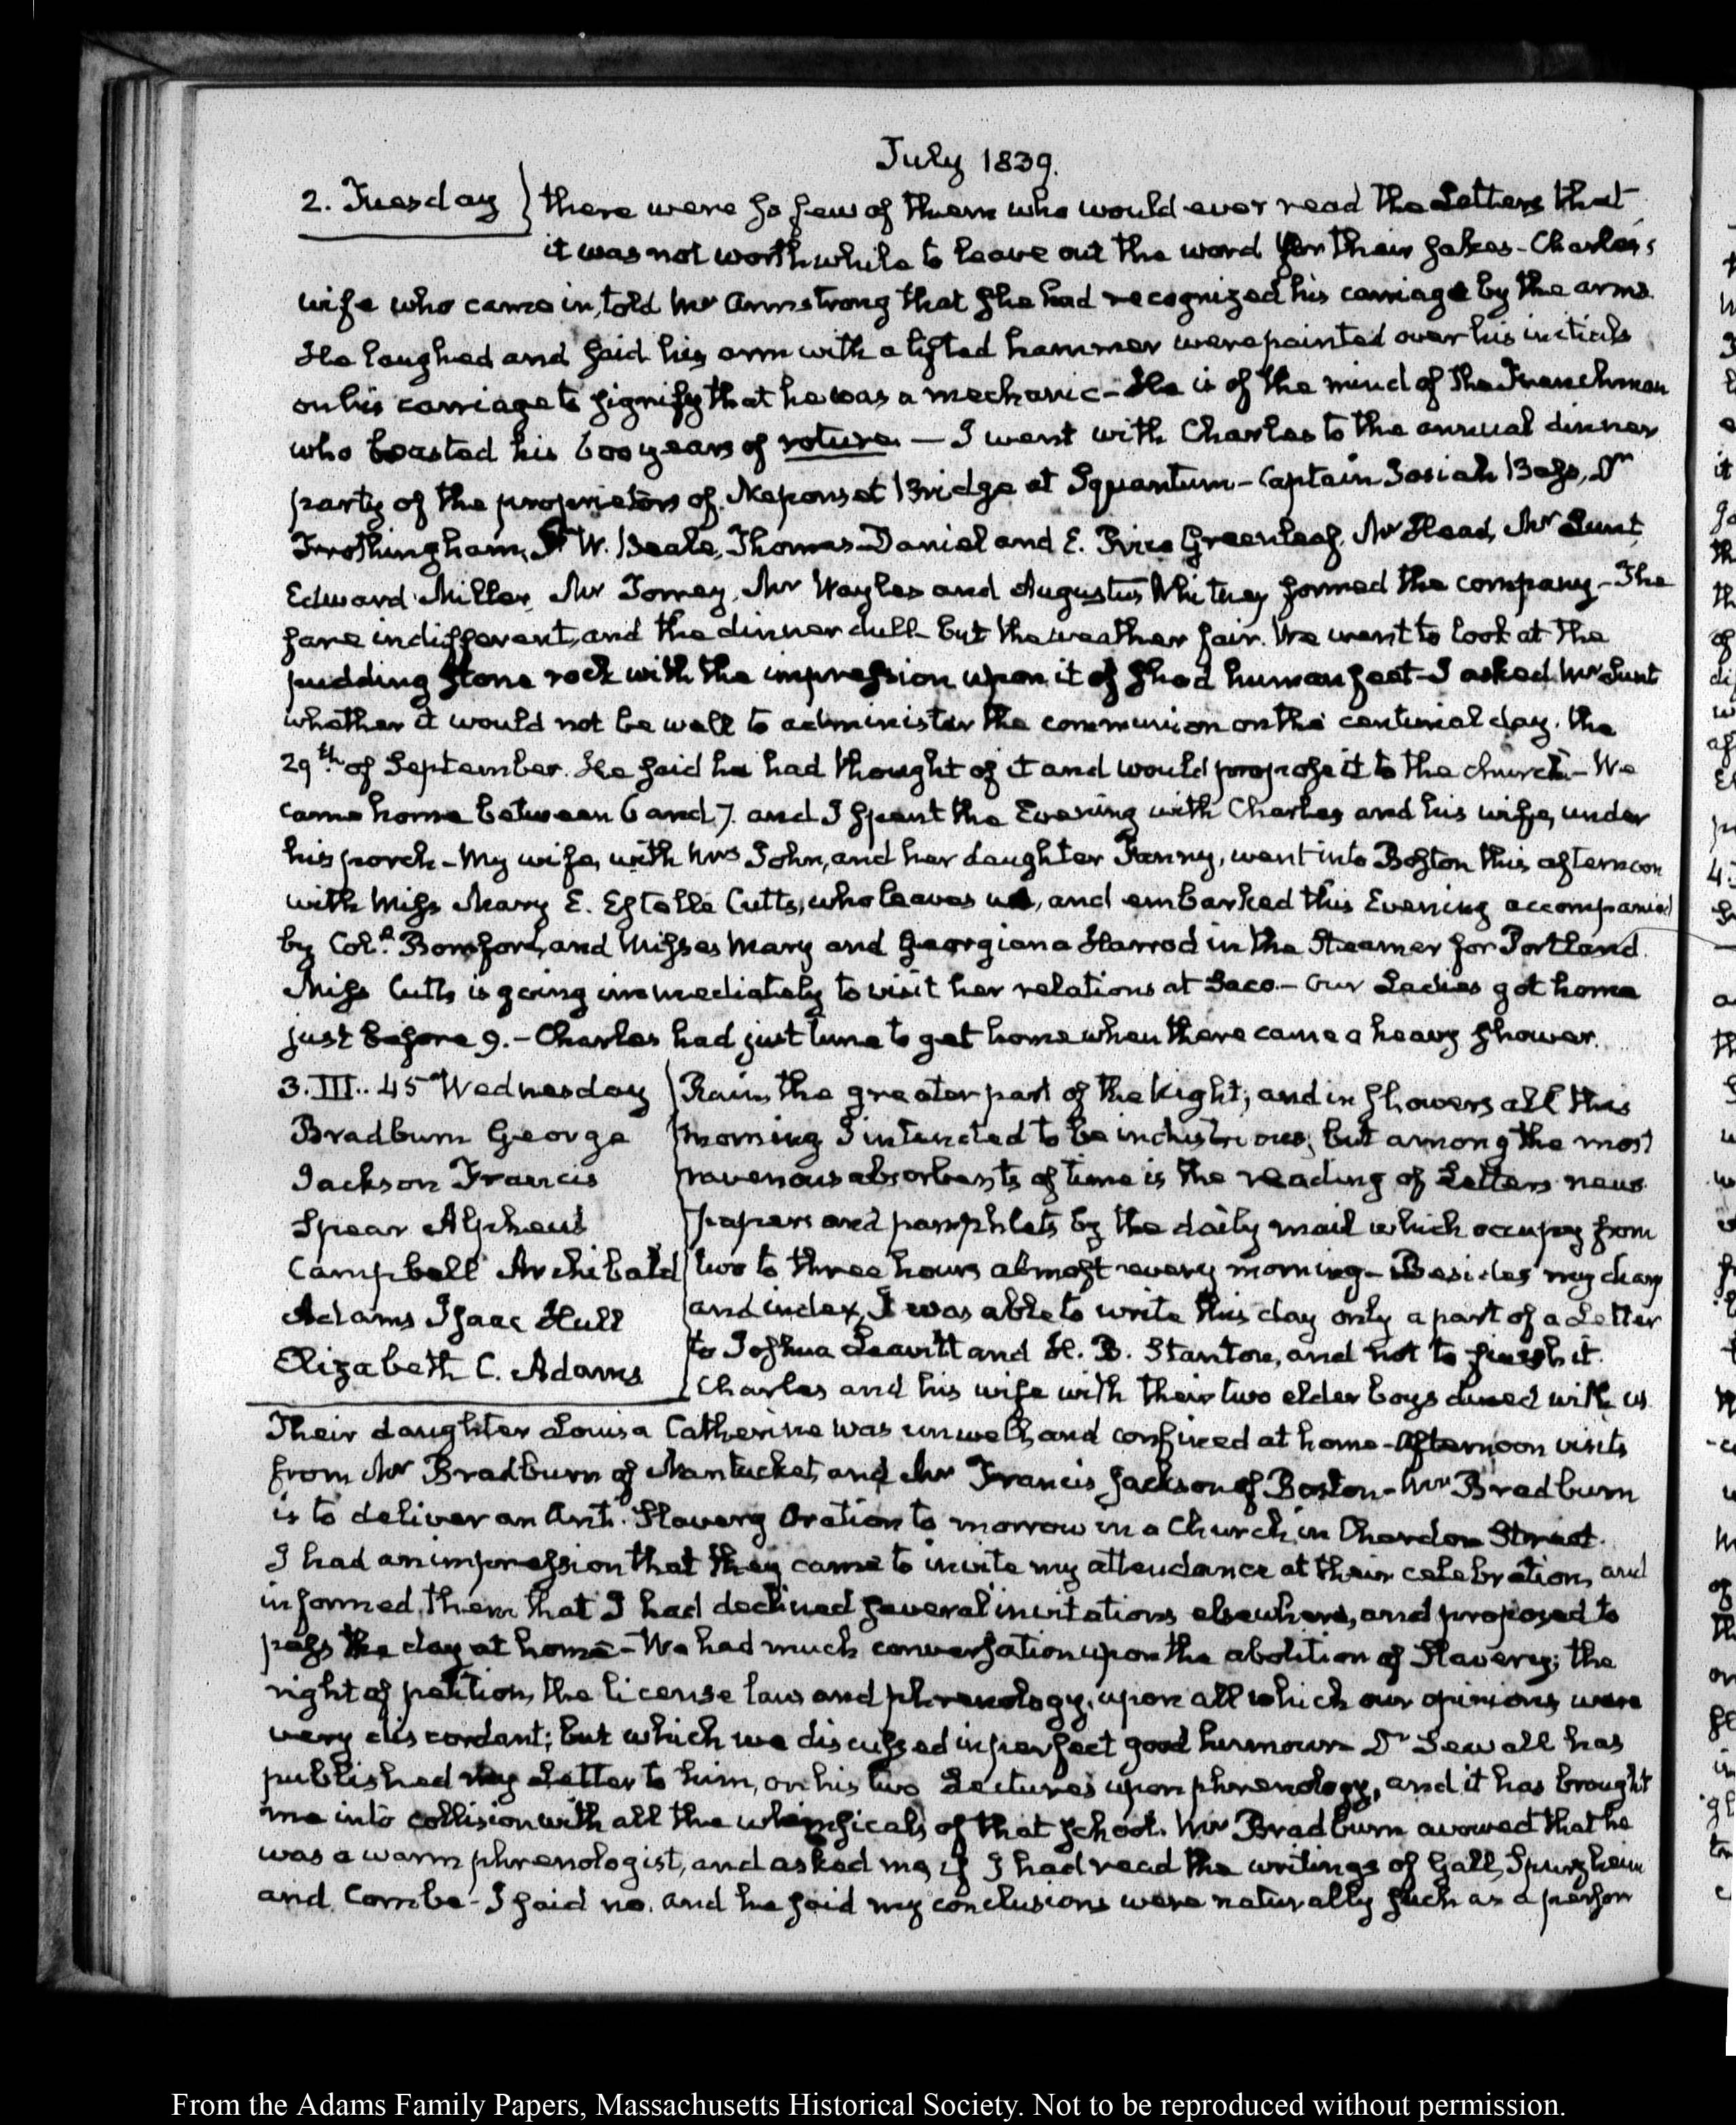 July 1839.
2. Tuesday } there were so few of them who would ever read the Letters that
it was not worth while to leave out the word for their sakes - Charles's
wife who came in, told Mr Armstrong that she had recognized his carriage by the arms.
He laughed and said his arm with a lifted hammer were painted over his initials
on his carriage to signify that he was a mechanic - He is of the mind of the Frenchman
who boasted his 600 years of roture. — I went with Charles to the annual dinner
party of the proprietors of Neponset Bridge at Squantum - Captain Josiah Bass, Dr
Frothingham, W. Beale, Thomas, Daniel and E. Price Greenleaf, Mr Head, Mr Lunt
Edward Miller, Mr Torrey, Mr Wayles and Augustus Whitney formed the company - The
fare indifferent, and the dinner dull but the weather fair. We went to look at the
pudding stone rock with the impression upon it of shod human feet - I asked Mr Lunt
whether it would not be well to administer the communion on the centurial day. the
29th of September. He said he had thought of it and would propose it to the church - We
came home between 6 and 7. and I spent the Evening with Charles and his wife, under
his porch - My wife, with Mrs John, and her daughter Fanny, went into Boston this afternoon
with Miss Mary E. Estelle Cutts, who leaves us, and embarked this Evening accompanied
by Coll. Bomford, and Misses Mary and Georgiana Harrod in the Steamer for Portland.
Miss Cutts is going immediately to visit her relations at Saco. - Our Ladies got home
just before 9. - Charles had just time to get home when there came a heavy shower.
3. III.. 45 Wednesday
Bradburn George
Jackson Francis
Spear Alpheus
Campbell Archibald
Adams Isaac Hull
Elizabeth C. Adams
Rain, the greater part of the Night; and in showers all this
morning I intended to be industrious; but among the most
ravenous absorbents of time is the reading of Letters news
papers and pamphlets by the daily mail which occupy from
two to three hours almost every morning - Besides my diary
and index, I was able to write this day only a part of a Letter
to Joshua Leavitt and H. B. Stanton, and not to finish it.
Charles and his wife with their two elder boys dined with us
Their daughter Louisa Catherine was unwell, and confined at home - Afternoon visits
from Mr Bradburn of Nantucket, and Mr Francis Jackson of Boston - Mr Bradburn
is to deliver an Anti-Slavery Oration to morrow in a Church in Chardon Street.
I had an impression that they came to invite my attendance at their celebration, and
informed them that I had declined several invitations elsewhere, and proposed to
pass the day at home - We had much conversation upon the abolition of Slavery; the
right of petition, the license law and phrenology, upon all which our opinions were
very discordant; but which we discussed in perfect good humour - Dr Sewall has
published my Letter to him, on his two Lectures upon phrenology, and it has brought
me into collision with all the whimsicals of that school. Mr Bradburn avowed that he
was a warm phrenologist, and asked me, if I had read the writings of Gall, Spurzheim
and Combe - I said no. and he said my conclusions were naturally such as a person